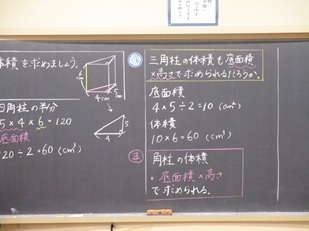 体積を求めましょう。
6
4cm
5cm
四角柱の半分
5×4×6=120
底面積
120÷2=60(cm³)
三角柱の体積も底面積
×高さで求められるだろうか。
底面積
4×5÷2=10(cm²)
体積
10×6=60(cm³)
ま
角柱の体積
=底面積×高さ
で求められる。